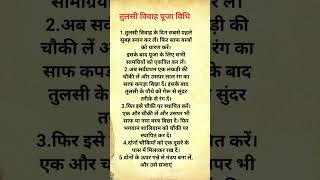 तुलसी विवाह पूजा विधि
1.तुलसी विवाह के दिन सबसे पहले
सुबह स्नान कर लें। फिर साफ वस्त्रों
को धारण करें।
इसके बाद पूजा के लिए सभी
सामग्रियों को एकत्रित कर लें।
2.अब सर्वप्रथम एक लकड़ी की
चौकी लें और उसपर लाल रंग का
साफ कपड़ा बिछा दें। इसके बाद
तुलसी के पौधे को गेरू से सुंदर
तरीके से रंग दें।
3.फिर इसे चौकी पर स्थापित करें।
एक और चौकी लें और उसपर भी
साफ या नया वस्त्र बिछा दें। फिर
भगवान शालिग्राम को चौकी पर
स्थापित कर दें।
4.दोनों चौकियों को एक दूसरे के
पास में मिलाकर रख दें।
5.दोनों के ऊपर गन्ने से मंडप बना लें,
और उसे सजाएं